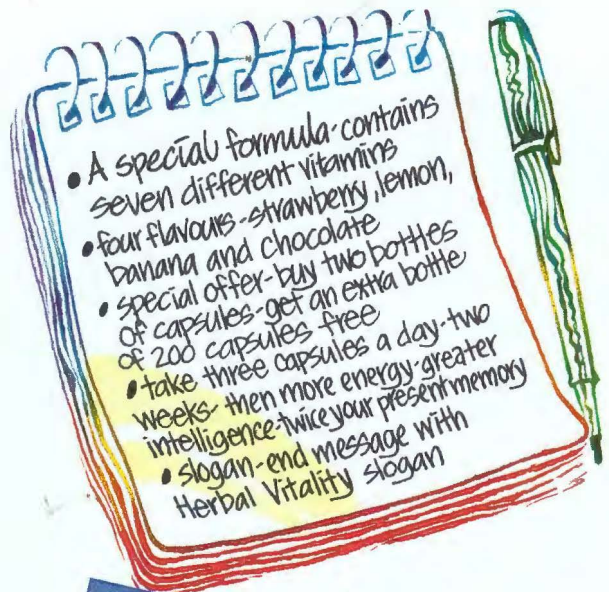 • A special formula-contains
seven different vitamins
• four flavours-strawberry, lemon,
banana and chocolate
• special offer-buy two bottles
of capsules-get an extra bottle
of 200 capsules free
• take three capsules a day-two
weeks-then more energy-greater
intelligence-twice your present memory
• slogan-end message with
Herbal Vitality slogan